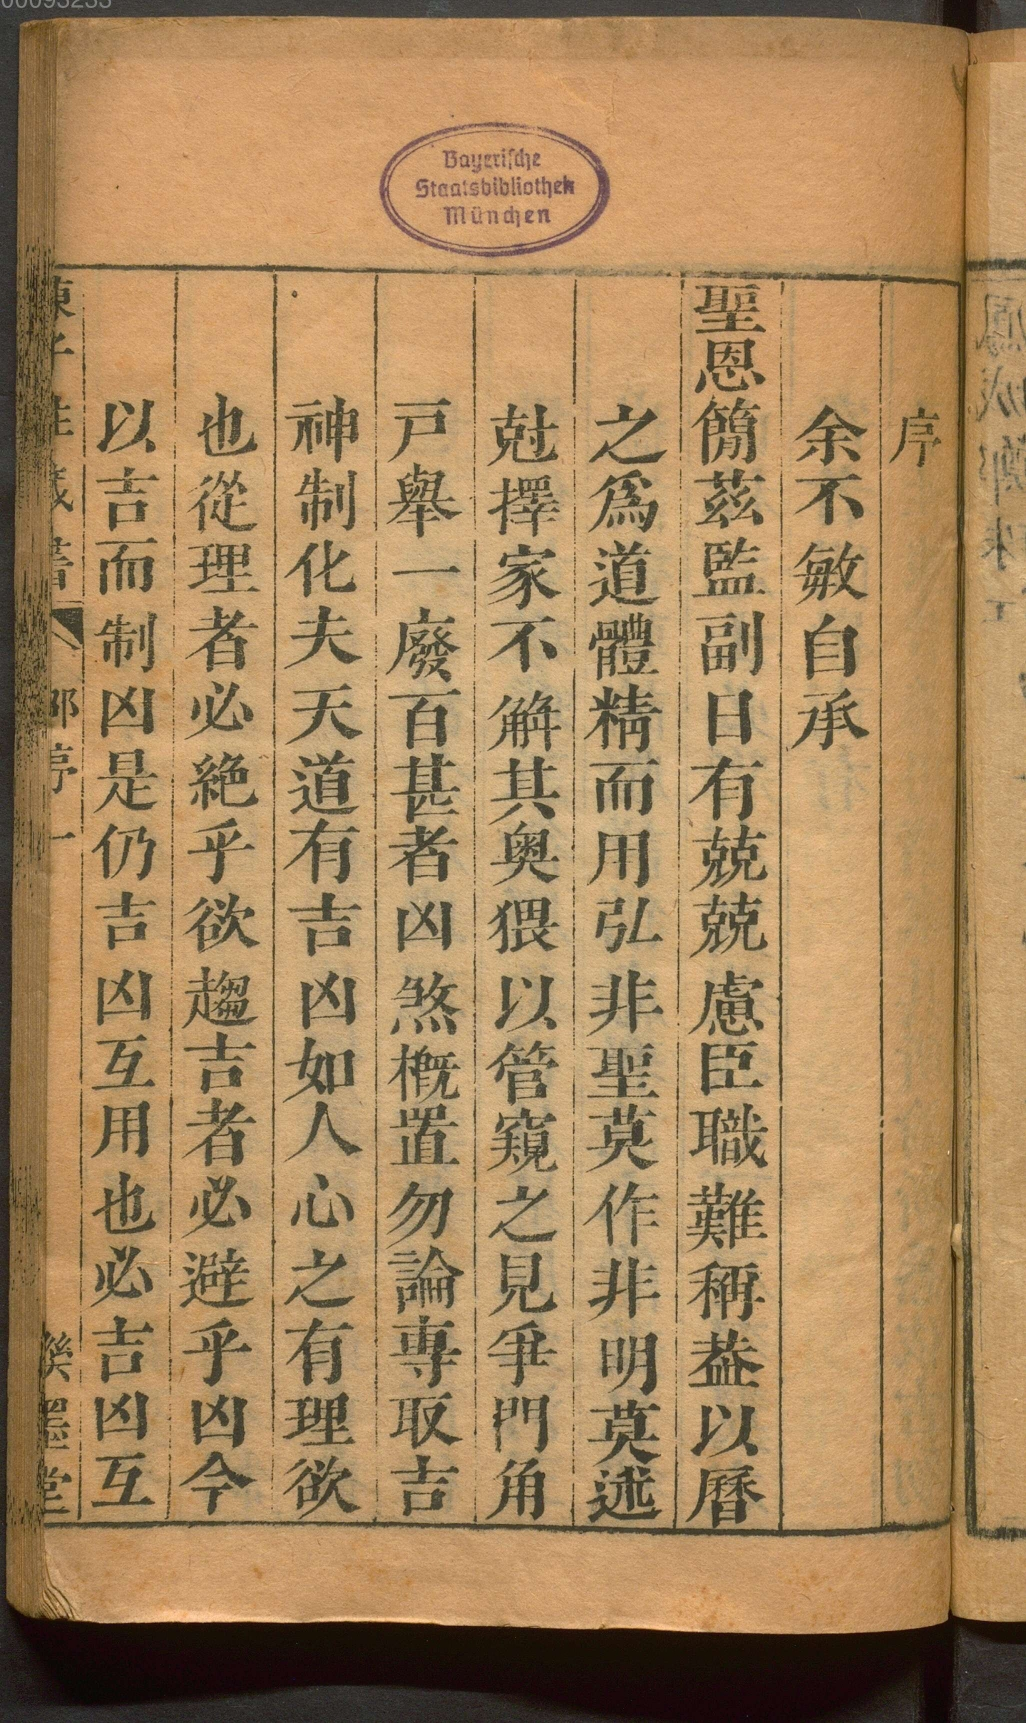 00093233
Bayerische
Staatsbibliothek
München
序
余不敏自承
聖恩簡茲監副日有兢兢慮臣職難稱葢以曆
之爲道體精而用弘非聖莫作非明莫述
尅擇家不解其奥猥以管窺之見爭門角
戸舉一廢百甚者凶煞槪置勿論專取吉
神制化夫天道有吉凶如人心之有理欲
也從理者必絶乎欲趨吉者必避乎凶今
以吉而制凶是仍吉凶互用也必吉凶互